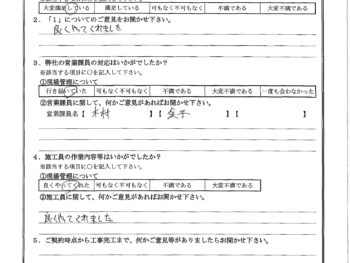 大変満足している 満足している 可もなく不可もなく 不満である 大変不満である
2．「１」についてのご意見をお聞かせ下さい。
良くやってくれました
3．弊社の営業課員の対応はいかがでしたか？
※該当する項目に○を記入して下さい。
①現場管理について
行き届いていた 可もなく不可もなく 不満である 大変不満である 一度も会わなかった
②営業課員に関して、何かご意見があればお聞かせ下さい。
営業課員名【 木村 】【 金子 】【 】
4．施工員の作業内容等はいかがでしたか？
※該当する項目に○を記入して下さい。
①現場管理について
良くやってくれた 可もなく不可もなく 不満である 大変不満である
②施工員に関して、何かご意見があればお聞かせ下さい。
良くやってくれました
5．ご契約時点から工事完工まで、何かご意見等がありましたらお聞かせ下さい。